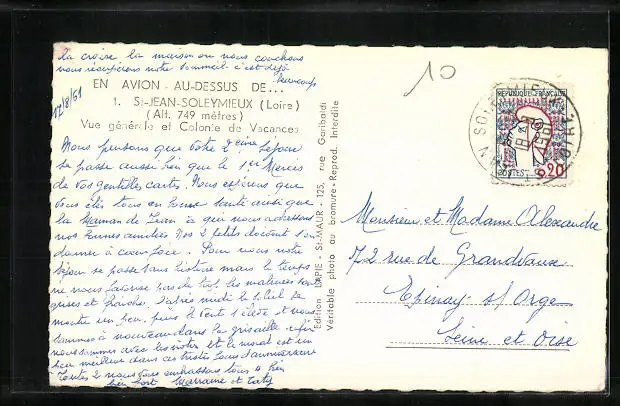 la croise la maison ou nous couchons
nous récupérons notre sommeil c'est déjà
beaucoup
EN AVION AU-DESSUS DE...
1. St-JEAN-SOLEYMIEUX (Loire)
(Alt. 749 mètres)
Vue générale et Colonie de Vacances
12/8/61
Nous pensons que votre 2eme séjour
se passe aussi bien que le 1er Mercis
de vos gentilles cartes. Nous espérons que
vous êtes tous en bonne santé ainsi que
la Maman de Jean à qui nous adressons
nos bonnes amitiés Nos 2 petits doivent s'en
donner à coeur joie. Pour nous notre
séjour se passe sans histoire mais le temps
ne nous favorise pas de trop, les matinées sont
grises et fraîches. l'après midi le soleil se
montre un peu, puis le vent s'élève et nous
sommes à nouveau dans la grisaille enfin
nous sommes avec les notres et le moral est un
peu meilleur dans ces tristes jours d'anniversaire
Toutes 2 nous vous embrassons tous 4 bien
bien fort Marraine et Taty
Edition LAPIE - St-MAUR - 125, rue Garibaldi
Véritable photo au bromure - Reprod. Interdite
10
REPUBLIQUE FRANÇAISE
POSTES 0,20
Monsieur et Madame Alexandre
72 rue de Grandvaux
Epinay s/ Orge
Seine et Oise